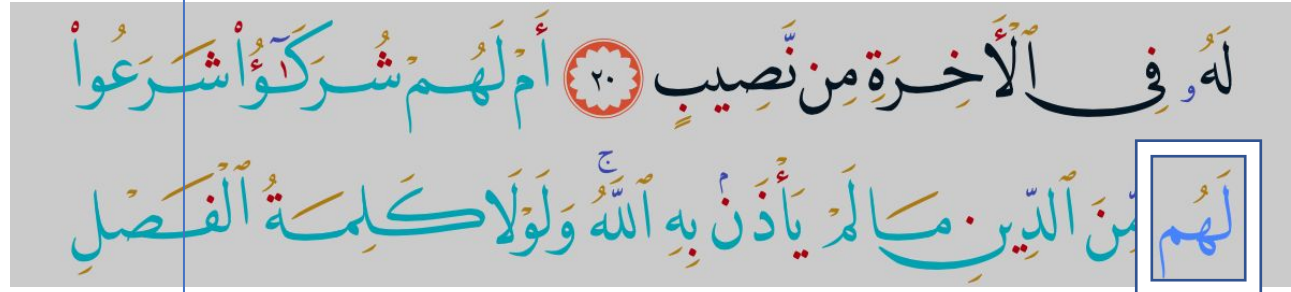 لَهُۥ فِى ٱلْأَخِرَةِ مِن نَّصِيبٍ ۝٢٠ أَمْ لَهُمْ شُرَكَٰٓؤُا۟ شَرَعُوا۟
لَهُم مِّنَ ٱلدِّينِ مَا لَمْ يَأْذَنۢ بِهِ ٱللَّهُۚ وَلَوْلَا كَلِمَةُ ٱلْفَصْلِ